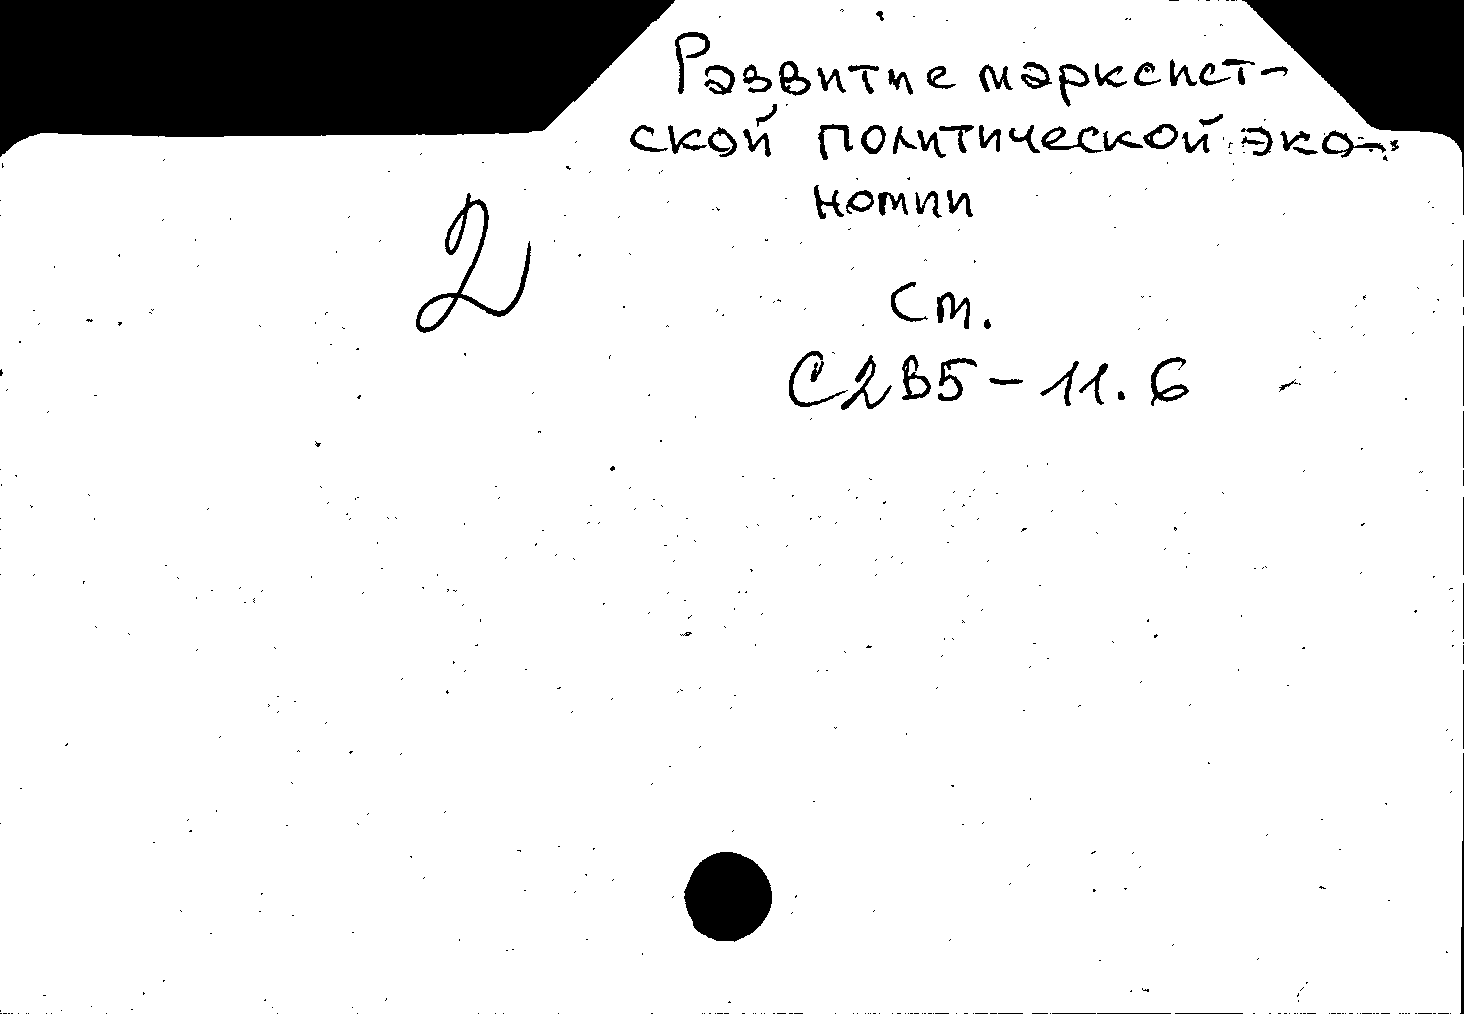 Развитие марксист-
ской политической эко-
номии
2
Cm.
C2B5-11.6